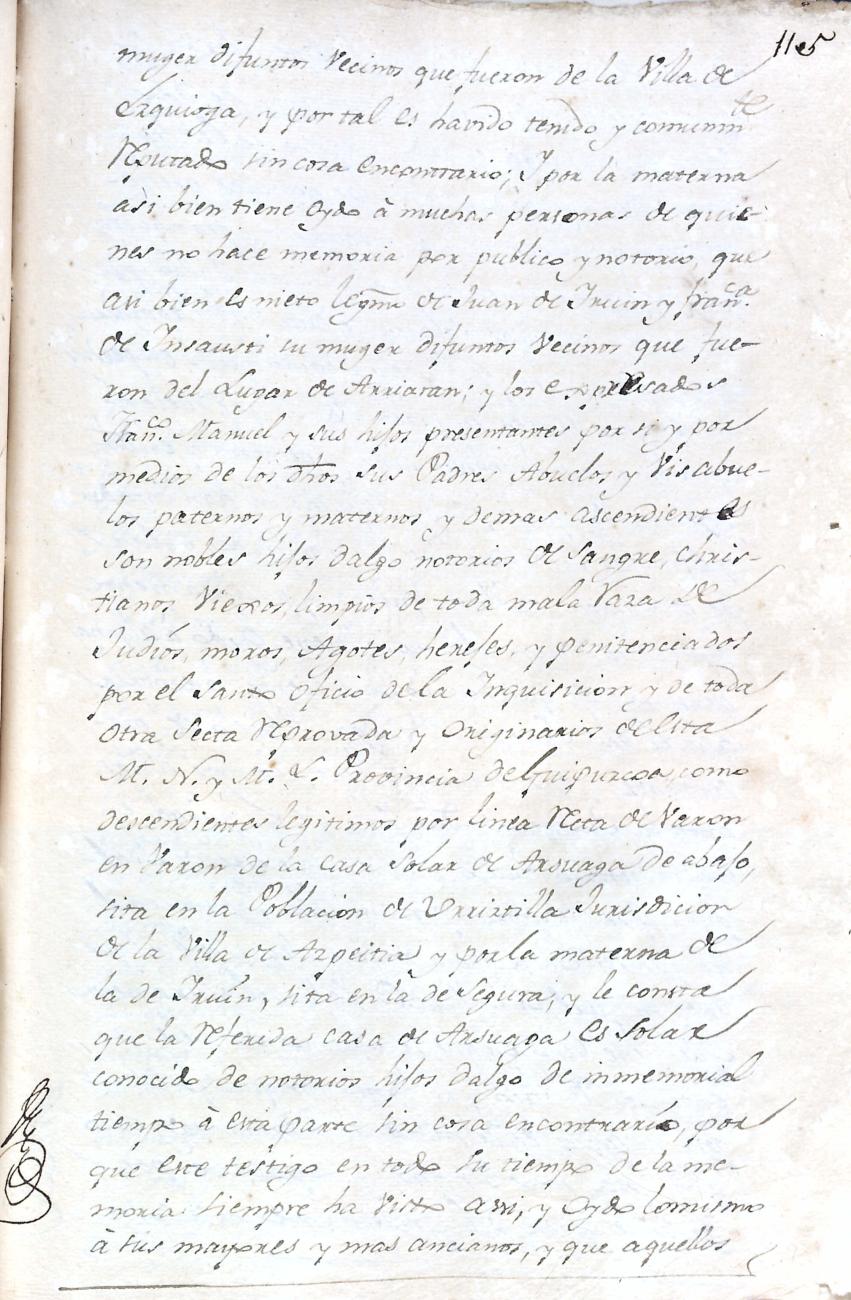 115
muger difuntos Vecinos que fueron de la Villa de
Ezquioga, y por tal es havido tenido y comunmte
Reputado sin cosa encontrario; Y por la materna
asi bien tiene Oydo à muchas personas de quie-
nes no hace memoria por publico y notorio, que
asi bien es nieto legmo de Juan de Irvin y franca
de Insausti su muger difuntos Vecinos que fue-
ron del Lugar de Arriaran; y los expresados
Franco Manuel y sus hijos presentantes por si y por
medios de los dhos sus Padres Abuelos y Visabue-
los paternos y maternos y demas ascendientes
son nobles hijos dalgo notorios de sangre, chris-
tianos Viexos, limpios de toda mala Raza de
Judios, moros, Agotes, herejes, y penitenciados
por el Santo Oficio de la Inquisicion y de toda
otra Secta Reprovada y Originarios de esta
M. N. y M. L. Provincia de Guipuzcoa, como
descendientes legitimos por linea Recta de Varon
en Varon de la Casa Solar de Arsuaga de abajo,
sita en la Poblacion de Urrixtilla Jurisdicion
de la Villa de Azpeitia y por la materna de
la de Irvin, sita en la de Segura; y le consta
que la Referida casa de Arsuaga es Solar
conocido de notorios hijos dalgo de inmemorial
tiempo à esta parte sin cosa encontrario, por
que este testigo en todo su tiempo de la me-
moria siempre ha Visto assi, y Oydo lo mismo
à sus mayores y mas ancianos, y que aquellos